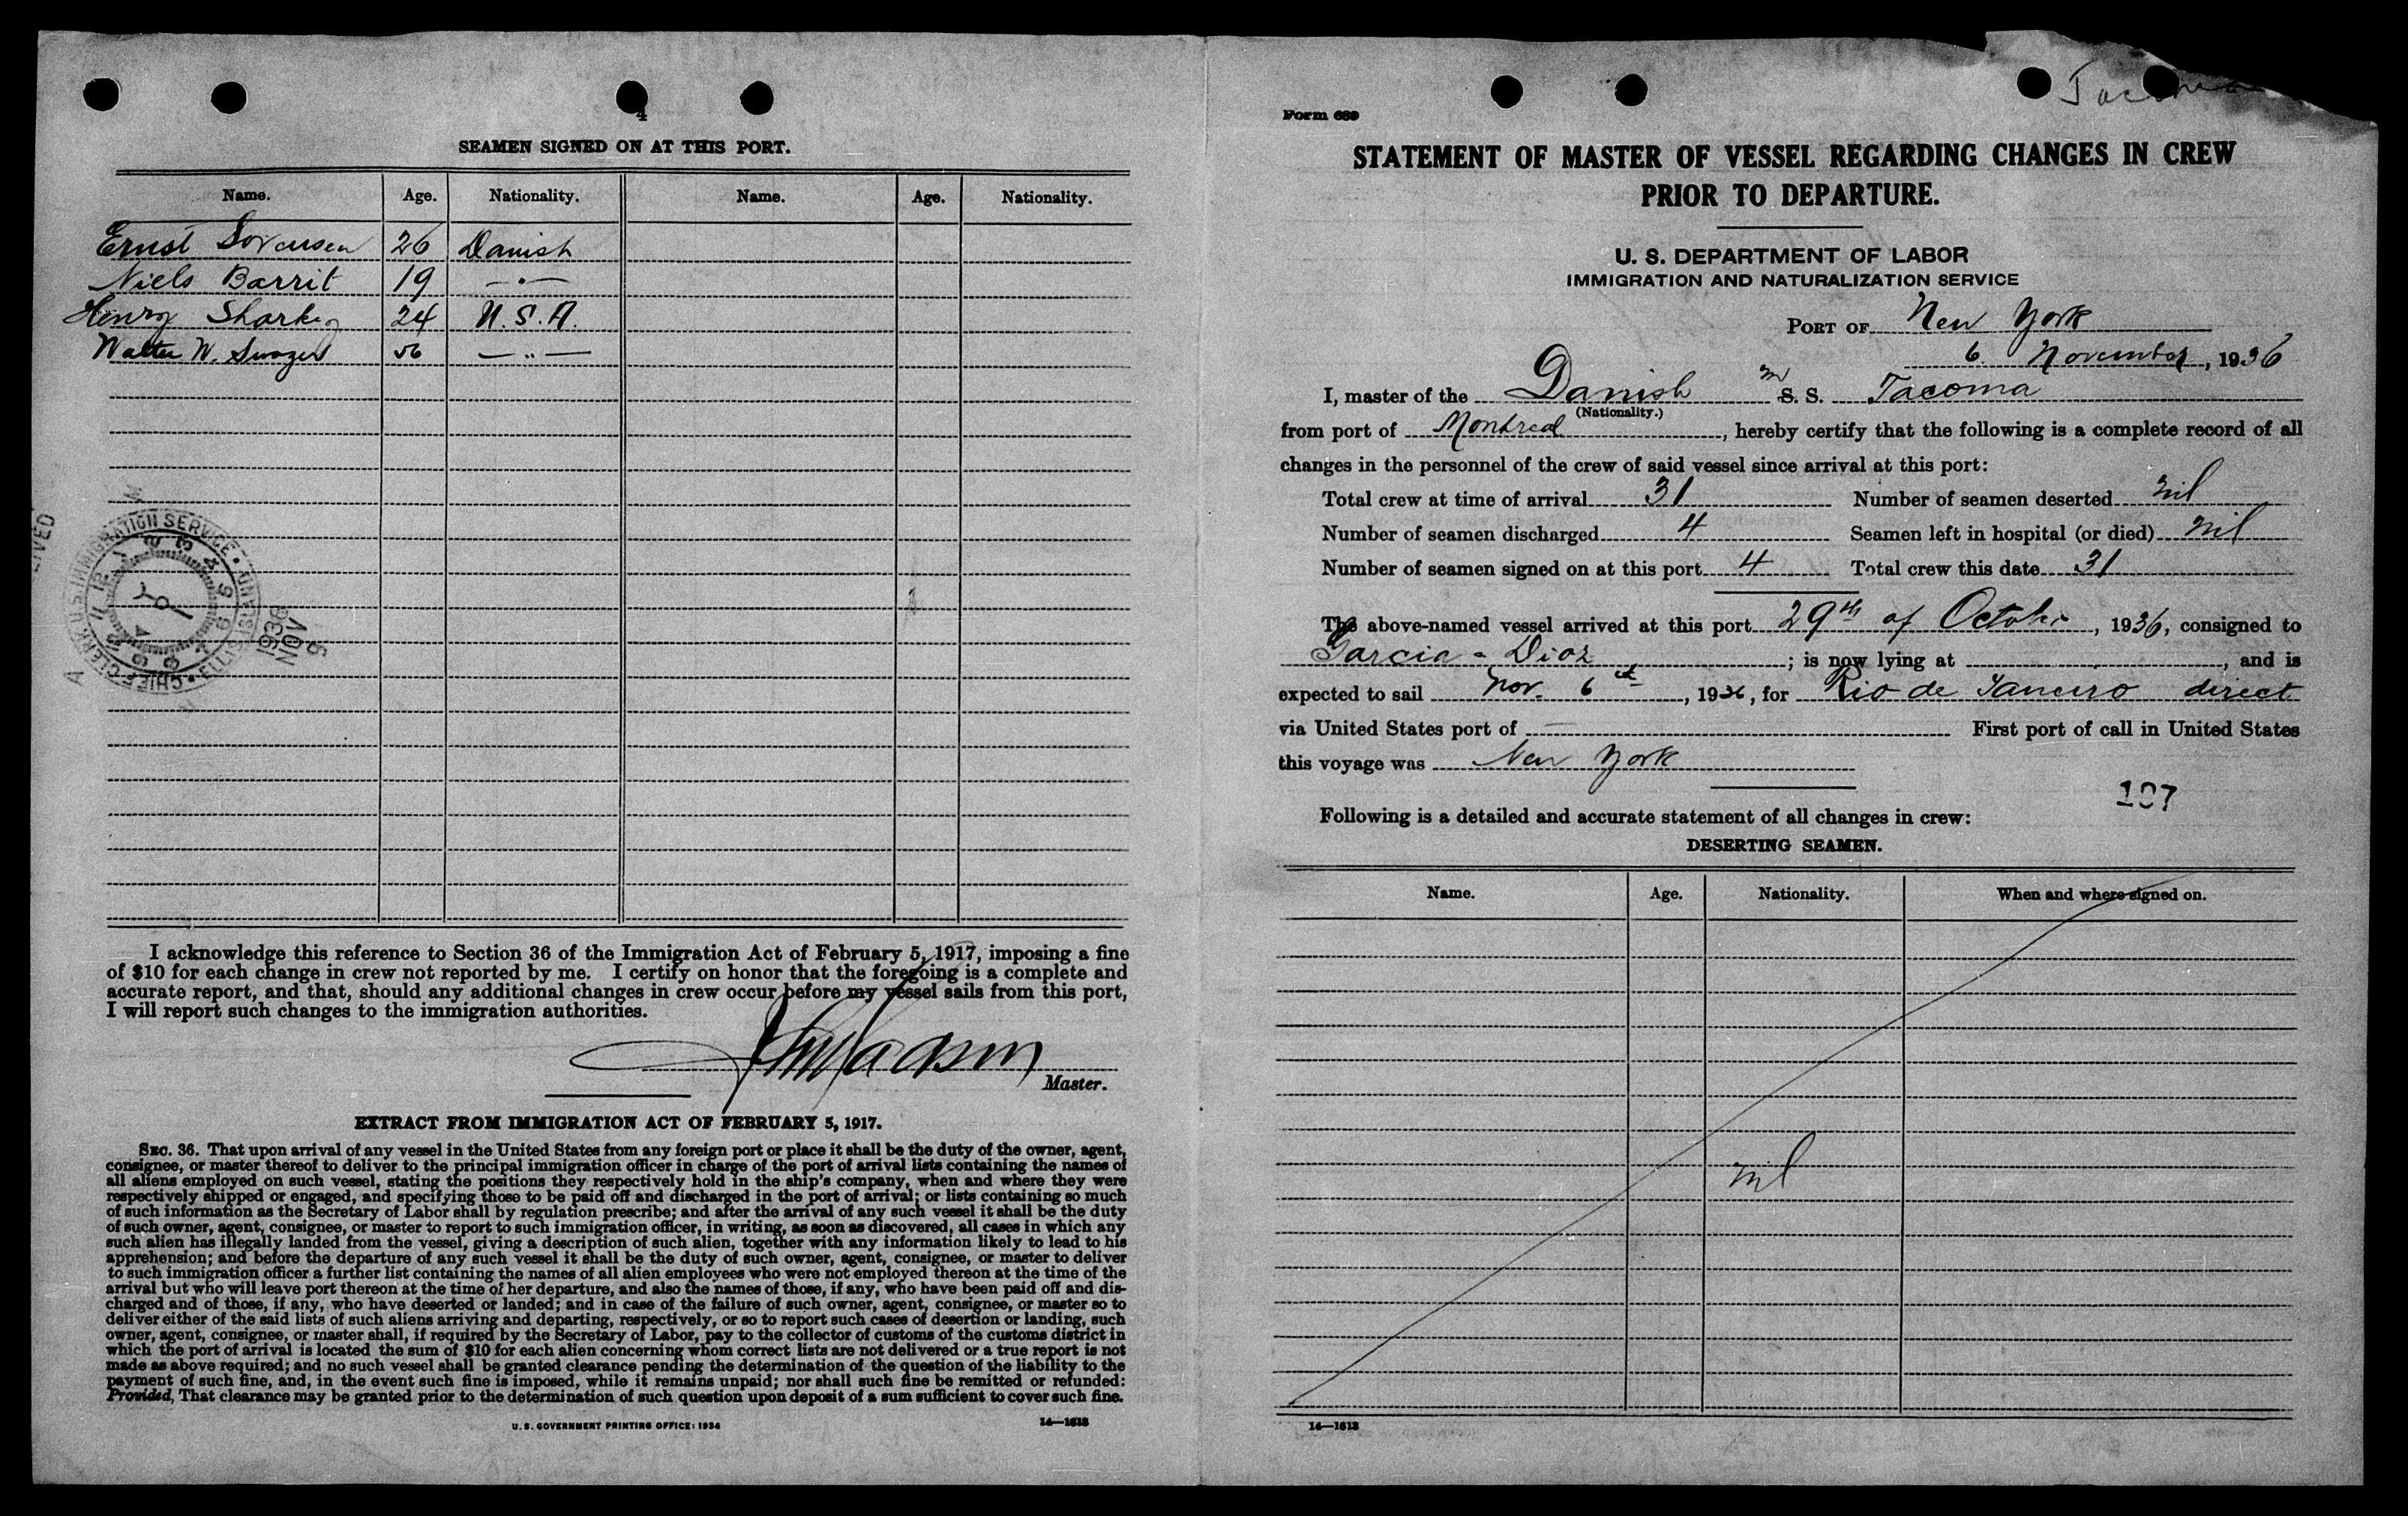 4
SEAMEN SIGNED ON AT THIS PORT.
Name. Age. Nationality. Name. Age. Nationality.
Ernst Sorensen 26 Danish
Niels Barrit 19 —·—
Henry Sharkey 24 U.S.A.
Walter W. 56 — " —
CHIEF CLERK U S IMMIGRATION SERVICE • ELLIS ISLAND •
1936
NOV
I acknowledge this reference to Section 36 of the Immigration Act of February 5, 1917, imposing a fine
of $10 for each change in crew not reported by me. I certify on honor that the foregoing is a complete and
accurate report, and that, should any additional changes in crew occur before my vessel sails from this port,
I will report such changes to the immigration authorities.
Master.
EXTRACT FROM IMMIGRATION ACT OF FEBRUARY 5, 1917.
SEC. 36. That upon arrival of any vessel in the United States from any foreign port or place it shall be the duty of the owner, agent,
consignee, or master thereof to deliver to the principal immigration officer in charge of the port of arrival lists containing the names of
all aliens employed on such vessel, stating the positions they respectively hold in the ship's company, when and where they were
respectively shipped or engaged, and specifying those to be paid off and discharged in the port of arrival; or lists containing so much
of such information as the Secretary of Labor shall by regulation prescribe; and after the arrival of any such vessel it shall be the duty
of such owner, agent, consignee, or master to report to such immigration officer, in writing, as soon as discovered, all cases in which any
such alien has illegally landed from the vessel, giving a description of such alien, together with any information likely to lead to his
apprehension; and before the departure of any such vessel it shall be the duty of such owner, agent, consignee, or master to deliver
to such immigration officer a further list containing the names of all alien employees who were not employed thereon at the time of the
arrival but who will leave port thereon at the time of her departure, and also the names of those, if any, who have been paid off and dis-
charged and of those, if any, who have deserted or landed; and in case of the failure of such owner, agent, consignee, or master so to
deliver either of the said lists of such aliens arriving and departing, respectively, or so to report such cases of desertion or landing, such
owner, agent, consignee, or master shall, if required by the Secretary of Labor, pay to the collector of customs of the customs district in
which the port of arrival is located the sum of $10 for each alien concerning whom correct lists are not delivered or a true report is not
made as above required; and no such vessel shall be granted clearance pending the determination of the question of the liability to the
payment of such fine, and, in the event such fine is imposed, while it remains unpaid; nor shall such fine be remitted or refunded:
Provided, That clearance may be granted prior to the determination of such question upon deposit of a sum sufficient to cover such fine.
U. S. GOVERNMENT PRINTING OFFICE: 1934 14—1613
Form 689
STATEMENT OF MASTER OF VESSEL REGARDING CHANGES IN CREW
PRIOR TO DEPARTURE.
U. S. DEPARTMENT OF LABOR
IMMIGRATION AND NATURALIZATION SERVICE
PORT OF New York
6. November, 1936
I, master of the Danish M S. S. Tacoma
(Nationality.)
from port of Montreal, hereby certify that the following is a complete record of all
changes in the personnel of the crew of said vessel since arrival at this port:
Total crew at time of arrival 31 Number of seamen deserted nil
Number of seamen discharged 4 Seamen left in hospital (or died) nil
Number of seamen signed on at this port 4 Total crew this date 31
The above-named vessel arrived at this port 29th of October, 1936, consigned to
Garcia - Diaz; is now lying at , and is
expected to sail Nov. 6th, 1936, for Rio de Janeiro direct
via United States port of — First port of call in United States
this voyage was New York
107
Following is a detailed and accurate statement of all changes in crew:
DESERTING SEAMEN.
Name. Age. Nationality. When and where signed on.
nil
14—1613